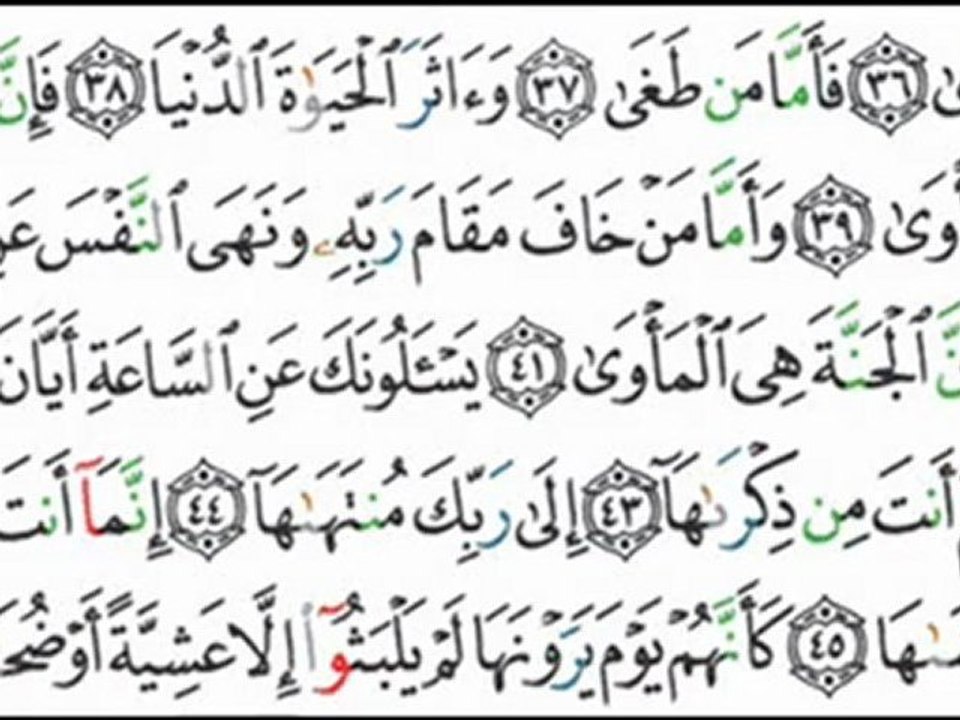 ىٰ ٣٦ فَأَمَّا مَن طَغَىٰ ٣٧ وَءَاثَرَ ٱلْحَيَوٰةَ ٱلدُّنْيَا ٣٨ فَإِنَّ
أْوَىٰ ٣٩ وَأَمَّا مَنْ خَافَ مَقَامَ رَبِّهِۦ وَنَهَى ٱلنَّفْسَ عَنِ
نَّ ٱلْجَنَّةَ هِىَ ٱلْمَأْوَىٰ ٤١ يَسْـَٔلُونَكَ عَنِ ٱلسَّاعَةِ أَيَّانَ
أَنتَ مِن ذِكْرَىٰهَآ ٤٣ إِلَىٰ رَبِّكَ مُنتَهَىٰهَآ ٤٤ إِنَّمَآ أَنتَ
ىٰهَا ٤٥ كَأَنَّهُمْ يَوْمَ يَرَوْنَهَا لَمْ يَلْبَثُوٓا۟ إِلَّا عَشِيَّةً أَوْ ضُحَ